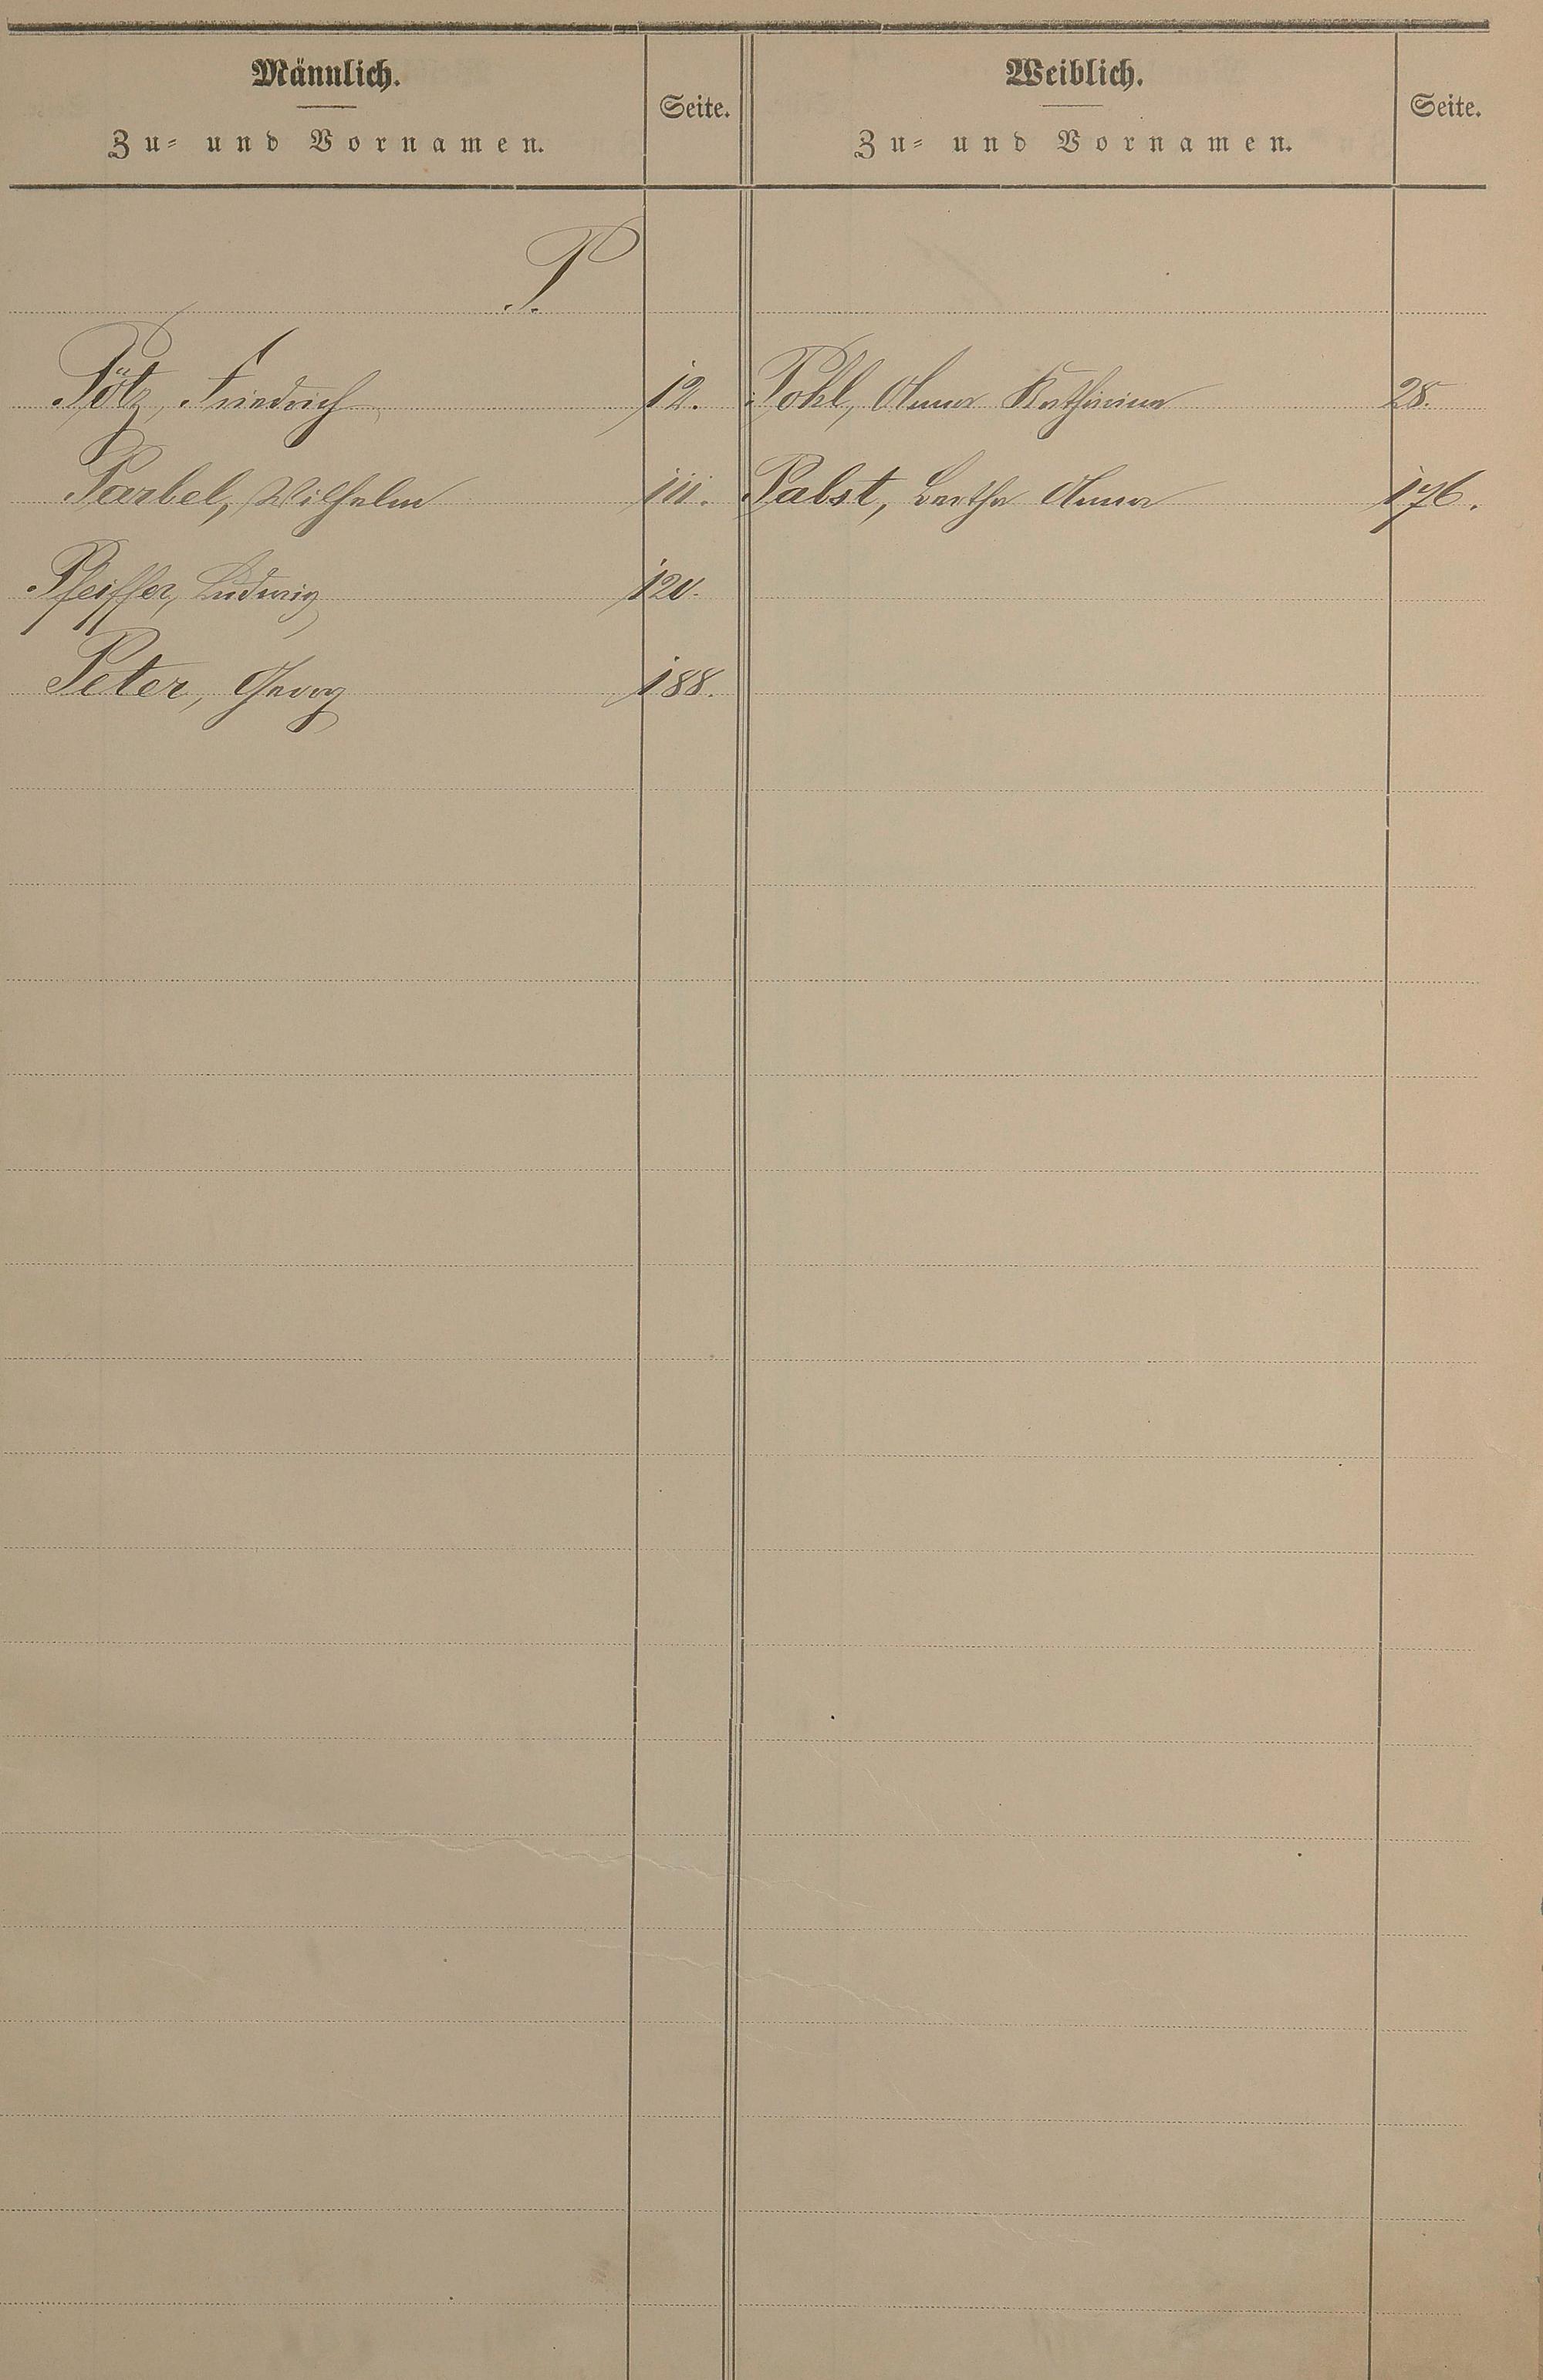 Männlich.
Zu- und Vornamen.
Seite.
Weiblich.
Zu- und Vornamen.
Seite.
P.
Pötz, Friedrich 12. Pohl, Anna Katharina 28.
Parbel, Wilhelm 111. Pabst, Bertha Anna 176.
Pfeiffer, Ludwig 120.
Peter, Georg 188.